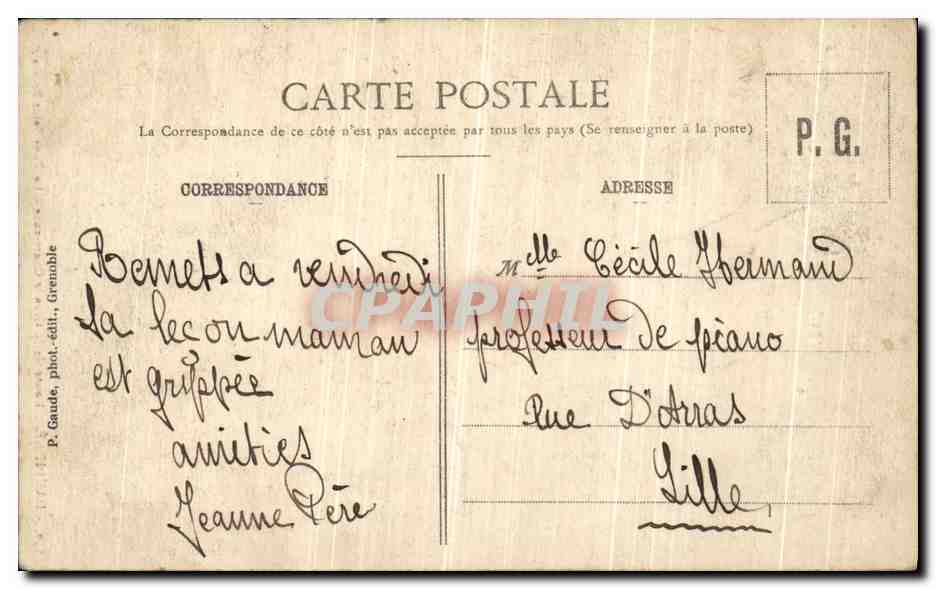 CARTE POSTALE
La Correspondance de ce côté n'est pas acceptée par tous les pays (Se renseigner à la poste)
P. G.
CORRESPONDANCE
Remets a vendredi
ta leçon maman
est grippée
amitiés
Jeanne Père
ADRESSE
Melle Cécile Hermand
professeur de piano
Rue D'Arras
Lille
P. Gaude, phot.-édit., Grenoble
CPAPHIL